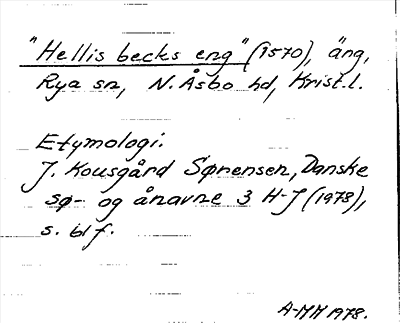 "Hellis becks eng" (1570), äng,
Rya sn, N. Åsbo hd, Krist. l.
Etymologi.
J. Kousgård Sørensen, Danske
sø- og ånavne 3 H-J (1978),
s. 61 f.
A-MM 1978.